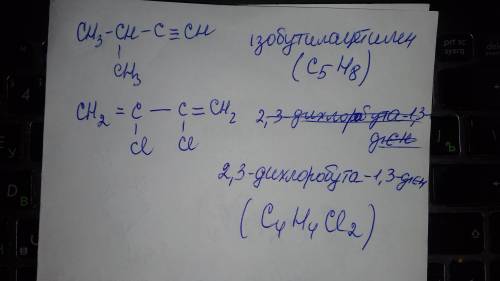 CH₃-CH-C≡CH ізобутилацетилен
CH₃ (C₅H₈)
CH₂=C—C=CH₂ 2,3-дихлоробута-1,3
Cl Cl дієн
2,3-дихлоробута-1,3-дієн
(C₄H₄Cl₂)